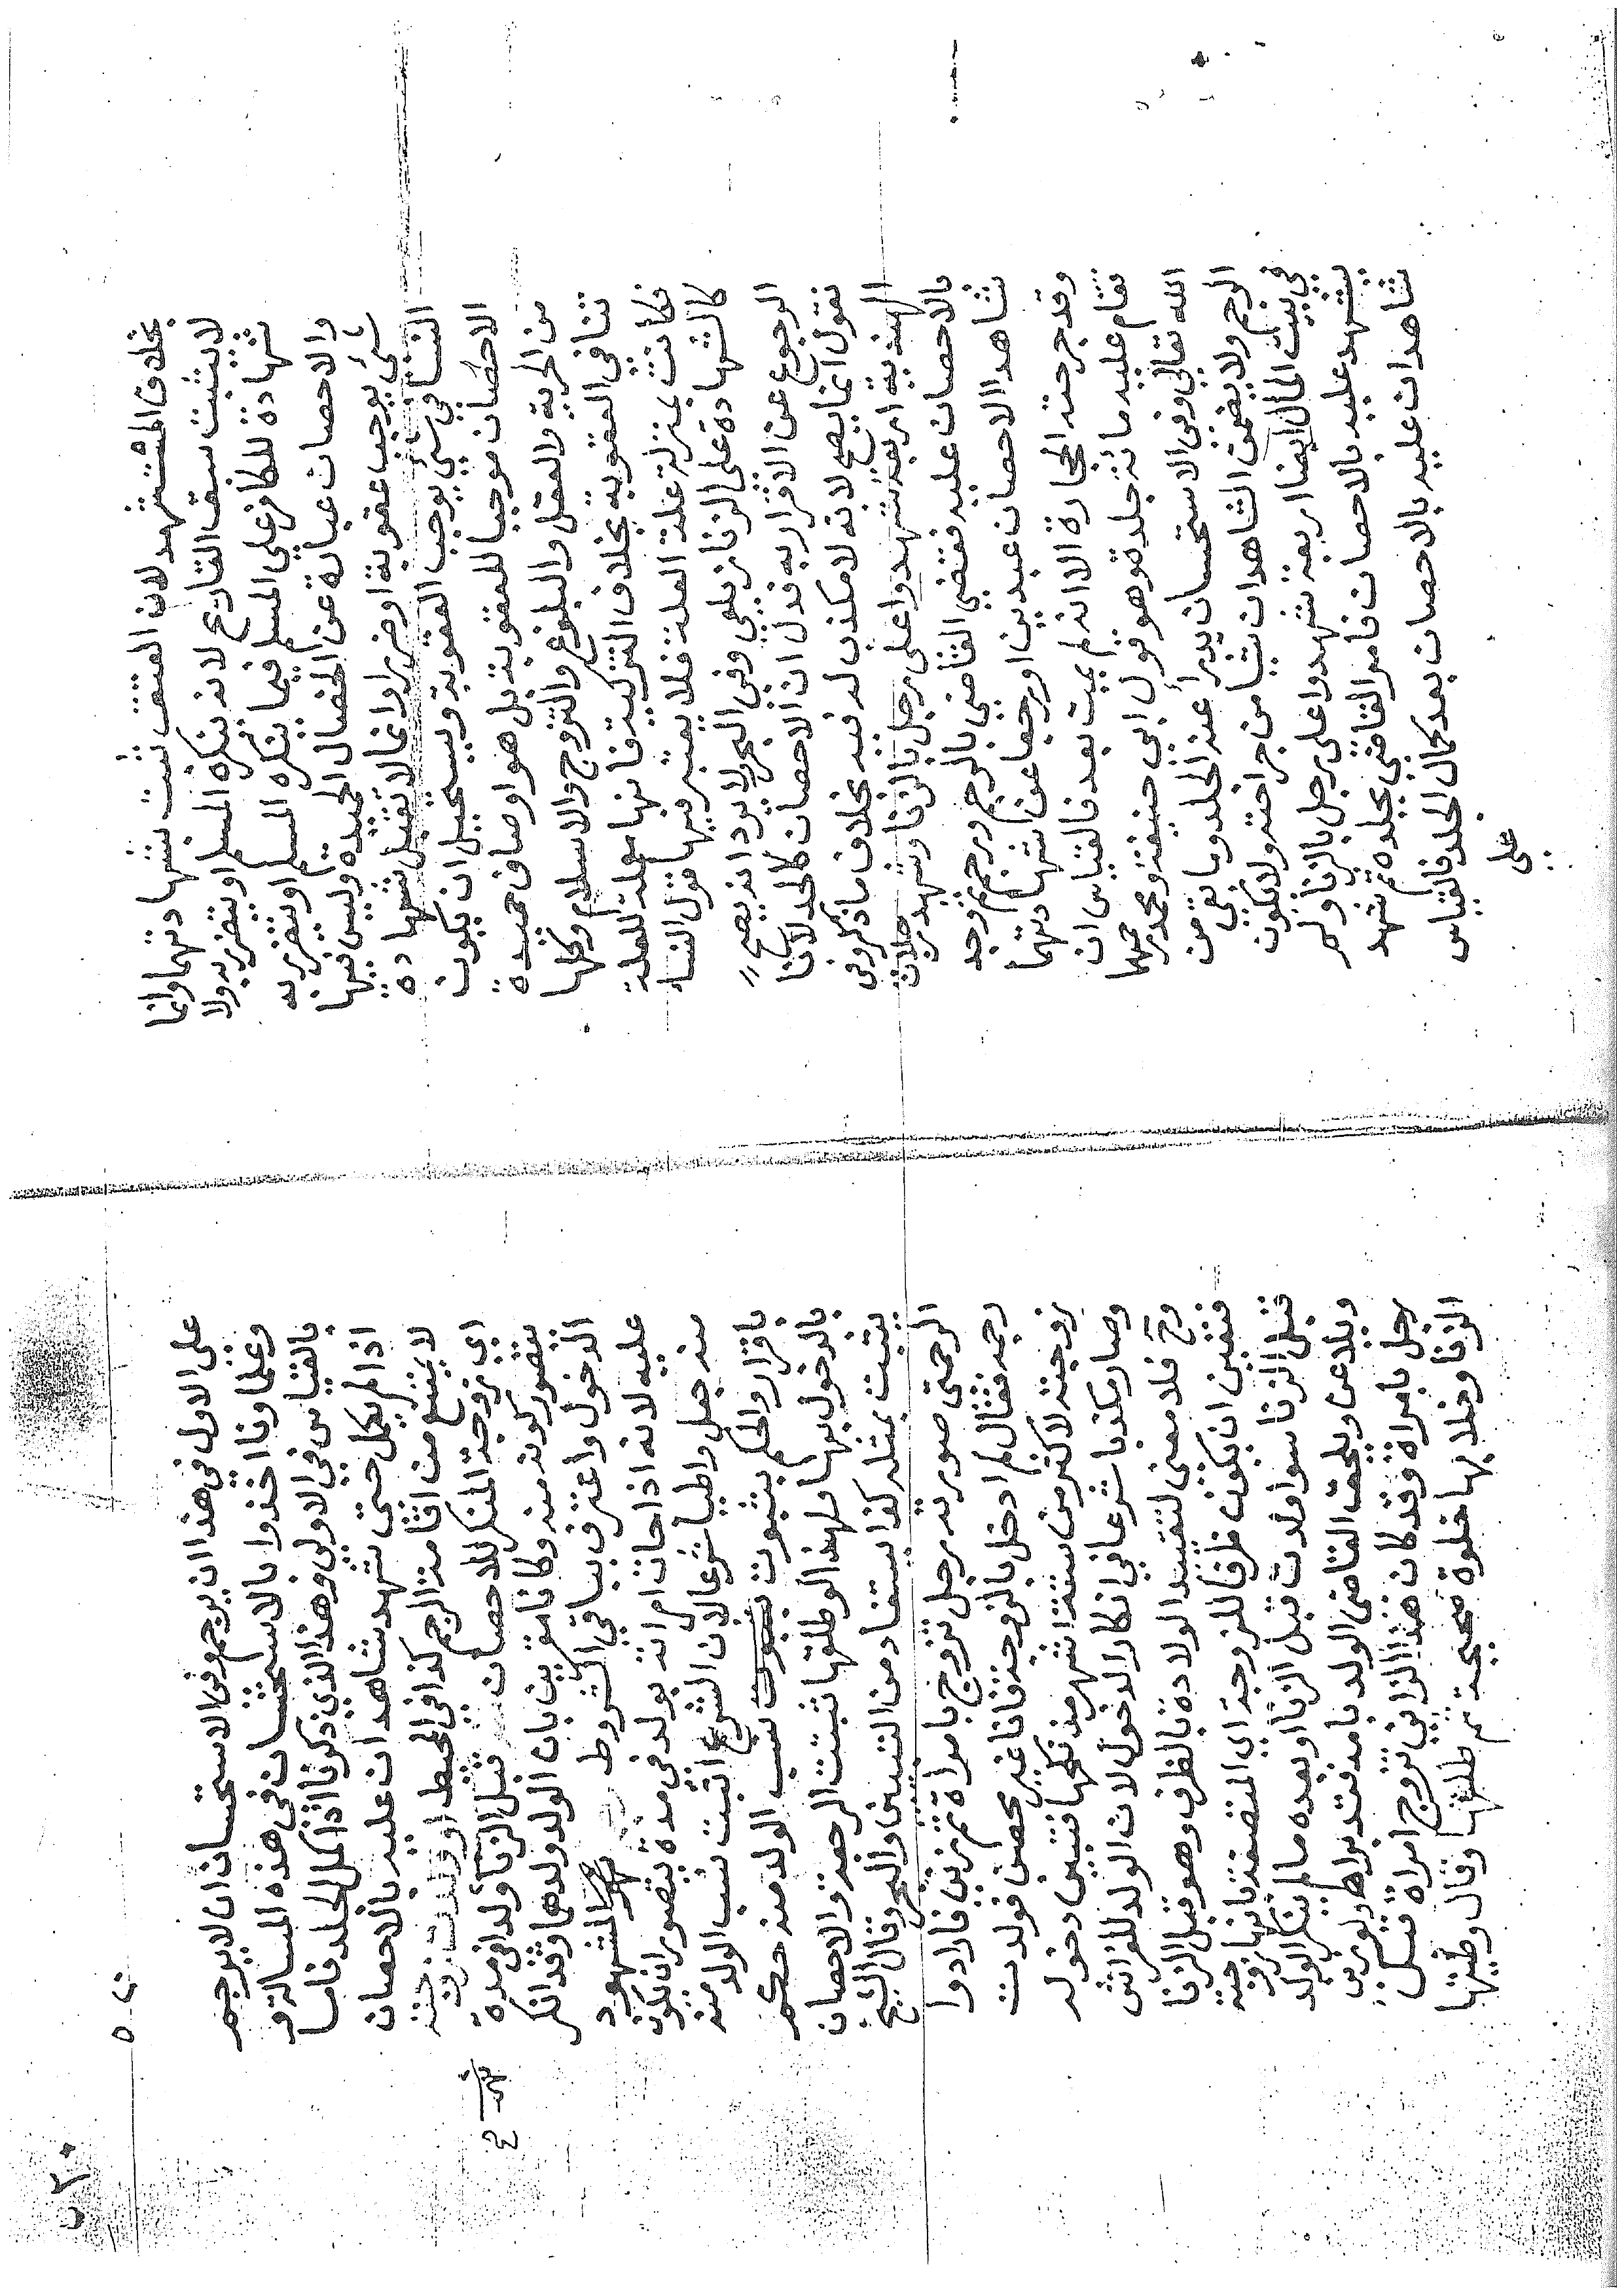 بخلاف المستشهد لان العتق ثبت بشهادتهما وانما
لا يثبت سبق التاريخ لانه ينكره المسلم او يتضرر به ولا
شهادة للكافر على المسلم فيما ينكره المسلم او يتضرر به
والاحصان عبارة عن الخصال الحميدة وليس فيها
شيء يوجب عقوبة او ضررا وانما لا تقبل شهادة
النساء في شيء يوجب العقوبة ويستحيل ان يكون
الاحصان موجبا للعقوبة بل هو اوصاف حميدة
من الحرية والعقل والبلوغ والتزوج والاسلام وكلها
تنافي العقوبة بخلاف التزكية فانها علة العلة
فكانت بمنزلة علة العلة فلا يعتبر فيها قول النساء
كالشهادة على الزنا زيلعي وفي البحر لا يرد انه يصح
الرجوع عن الاقرار به فدل ان الاحصان كالحد لانا
نقول انما يصح لانه لا مكذب له فيه بخلاف ما ذكر وفي
الهندية اربعة شهدوا على رجل بالزنا وشهد رجلان
بالاحصان عليه فقضى القاضي بالرجم ورجم ثم وجد
شاهدا الاحصان عبدين او رجعا عن شهادتهما
وقد جرحته الحجارة الا انه لم يمت بعد فالقياس ان
تقام عليه مائة جلدة وهو قول ابي حنيفة ومحمد رحمهما
الله تعالى وفي الاستحسان يدرأ عنه الجلد وما بقي من
الرجم ولا يضمن الشاهدان شيئا من جراحته ولا يكون
في بيت المال ايضا اربعة شهدوا على رجل بالزنا ولم
يشهد عليه بالاحصان فامر القاضي بجلده ثم شهد
شاهدان عليه بالاحصان بعد كمال الجلد فالقياس
على
على الاول في هذا ان يرجم وفي الاستحسان ان لا يرجم
وعلماؤنا اخذوا بالاستحسان في هذه المسالة و
بالقياس في الاولى وهذا الذي ذكرنا اذا كمل الجلد فاما
اذا لم يكمل حتى شهد شاهدان عليه بالاحصان
لا يمنع من اقامة الرجم كذا في المحيط او ولدت زوجته
اي زوجة المنكر للاحصان قبل الزنا ولدا في مدة
يتصور كونه منه وكانا مقرين بان الولد ولدهما وقد انكر
الدخول واعترف بباقي الشروط نهر الشهود
عليه لانه اذا حاث امراته بولد في مدة يتصور ان يكون
منه جعل واطيا شرعا لان الشرع اثبت نسب الولد منه
باقرار والحكم بثبوت نسب الولد منه حكم
بالدخول بها ولهذا لو طلقها ثبتت الرجعة والاحصان
يثبت بمثله كذا يستفاد من التبيين والبحر وقال الشيخ
الرحمتي صورته رجل تزوج بامراة ثم زنى فارادوا
رجمه فقال لم ادخل بالزوجة فانا غير محصن فولدت
زوجته لاكثر من ستة اشهر منذ نكحها فتبين دخوله
وصار مكذبا شرعا في انكار الدخول لان الولد للفراش
وح فلا معنى لتقييد الولادة بالظرف وهو قبل الزنا
فتعين ان يكون ظرفا للزوجة اي المتصفة بانها زوجته
قبل الزنا سوا ولدت قبل الزنا او بعده ما لم ينكر الولد
ويلاعن ويلحق القاضي الولد بامه فتدبر اهـ ولو زنى
رجل بامراة وقد كان هذا الزاني تزوج امراة قبل
الزنا وخلا بها خلوة صحيحة ثم طلقها وقال وطئتها